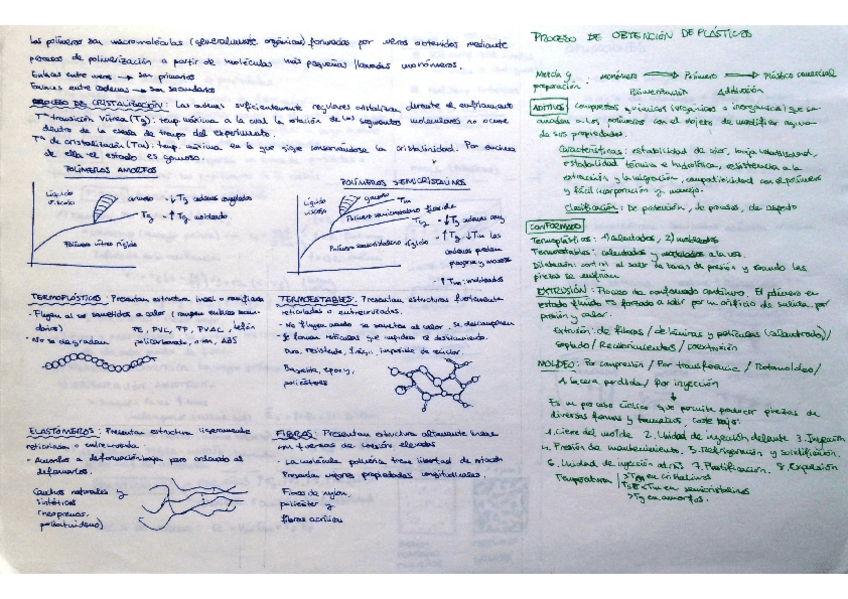 Los polímeros son macromoléculas (generalmente orgánicas) formadas por meros obtenidos mediante
procesos de polimerización a partir de moléculas más pequeñas llamadas monómeros.
Enlaces entre meros → son primarios
Enlaces entre cadenas → son secundarios
PROCESO DE CRISTALIZACIÓN: Las cadenas suficientemente regulares cristalizan durante el enfriamiento
Tª transición vítrea (Tg): temp máxima a la cual la rotación de los segmentos moleculares no ocurre
dentro de la escala de tiempo del experimento.
Tª de cristalización (Tm): temp. máxima en la que sigue conservándose la cristalinidad. Por encima
de ella el estado es gomoso.
POLÍMEROS AMORFOS
Líquido
viscoso
gomoso
Tg
Polímero vítreo rígido
POLÍMEROS SEMICRISTALINOS
Líquido
viscoso
gomoso
Tm
Polímero semicristalino flexible
Tg
Polímero semicristalino rígido
TERMOPLÁSTICOS: Presentan estructura lineal o ramificada
- Fluyen al ser sometidos a calor (rompen enlaces secundarios)
- No se degradan
PE, PVC, PP, PVAC, teflón
policarbonato, nylon, ABS
TERMOESTABLES: Presentan estructuras fuertemente
reticuladas o entrecruzadas.
- No fluyen cuando se someten al calor, se descomponen
- Se forman retículas que impiden el deslizamiento.
Duros, resistentes, frágiles, imposible de reciclar.
Baquelita, epoxy,
poliésteres
ELASTÓMEROS: Presentan estructura ligeramente
reticulada o entrecruzada.
deformarlos.
Cauchos naturales y
sintéticos
(neopreno,
polibutadieno)
FIBRAS: Presentan estructura altamente lineal
con fuerzas de cohesión elevadas
- La molécula polimérica tiene libertad de rotación
Presenta mejores propiedades longitudinales.
Fibras de nylon,
poliéster y
fibras acrílicas
PROCESO DE OBTENCIÓN DE PLÁSTICOS
Mezcla y
preparación
monómero → Polímero → Plástico comercial
Polimerización Aditivación
ADITIVOS: compuestos químicos (orgánicos o inorgánicos) que se
añaden a los polímeros con el objeto de modificar alguna
de sus propiedades.
Características: estabilidad de color, baja volatilidad,
estabilidad térmica e hidrolítica, resistencia a la
extracción y la migración, compatibilidad con el polímero
y fácil incorporación y manejo.
Clasificación: De protección, de proceso, de aspecto
CONFORMADO
Termoplásticos: 1) calentados, 2) moldeados
Termoestables: calentados y moldeados a la vez.
piezas se enfrían
EXTRUSIÓN: Proceso de conformado continuo. El polímero en
estado fluido es forzado a salir por un orificio de salida por
presión y calor.
Extrusión: de fibras / de láminas y películas (calandrado) /
soplado / Recubrimientos / coextrusión
MOLDEO: Por compresión / Por transferencia / Rotomoldeo /
A la cera perdida / Por inyección
Es un proceso cíclico que permite producir piezas de
diversas formas y tamaños, coste bajo.
1. Cierre del molde 2. Unidad de inyección delante 3. Inyección
4. Presión de mantenimiento. 5. Refrigeración y solidificación.
6. Unidad de inyección atrás. 7. Plastificación. 8. Expulsión
Temperatura
>Tm en cristalinos
>Tg en amorfos.